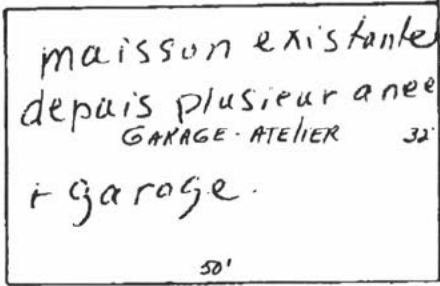 maisson existante
depuis plusieur anee
GARAGE-ATELIER 32'
+ garage.
50'